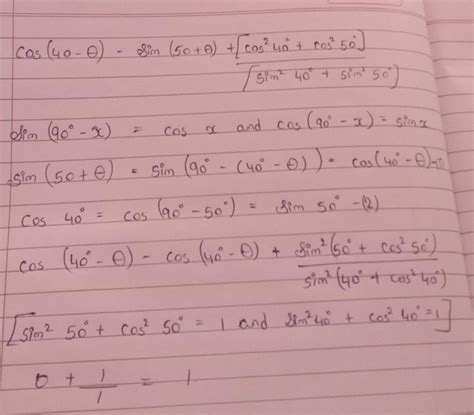 cos (40 - θ) - sin (50 + θ) + [cos² 40° + cos² 50°]
[sin² 40° + sin² 50°]
sin (90° - x) = cos x and cos (90° - x) = sin x
sin (50 + θ) = sin (90° - (40° - θ)) = cos (40° - θ) -(1)
cos 40° = cos (90° - 50°) = sin 50° - (2)
cos (40° - θ) - cos (40° - θ) + sin² (50° + cos² 50°)
sin² (40° + cos² 40°)
[sin² 50° + cos² 50° = 1 and sin² 40° + cos² 40° = 1]
0 + 1/1 = 1